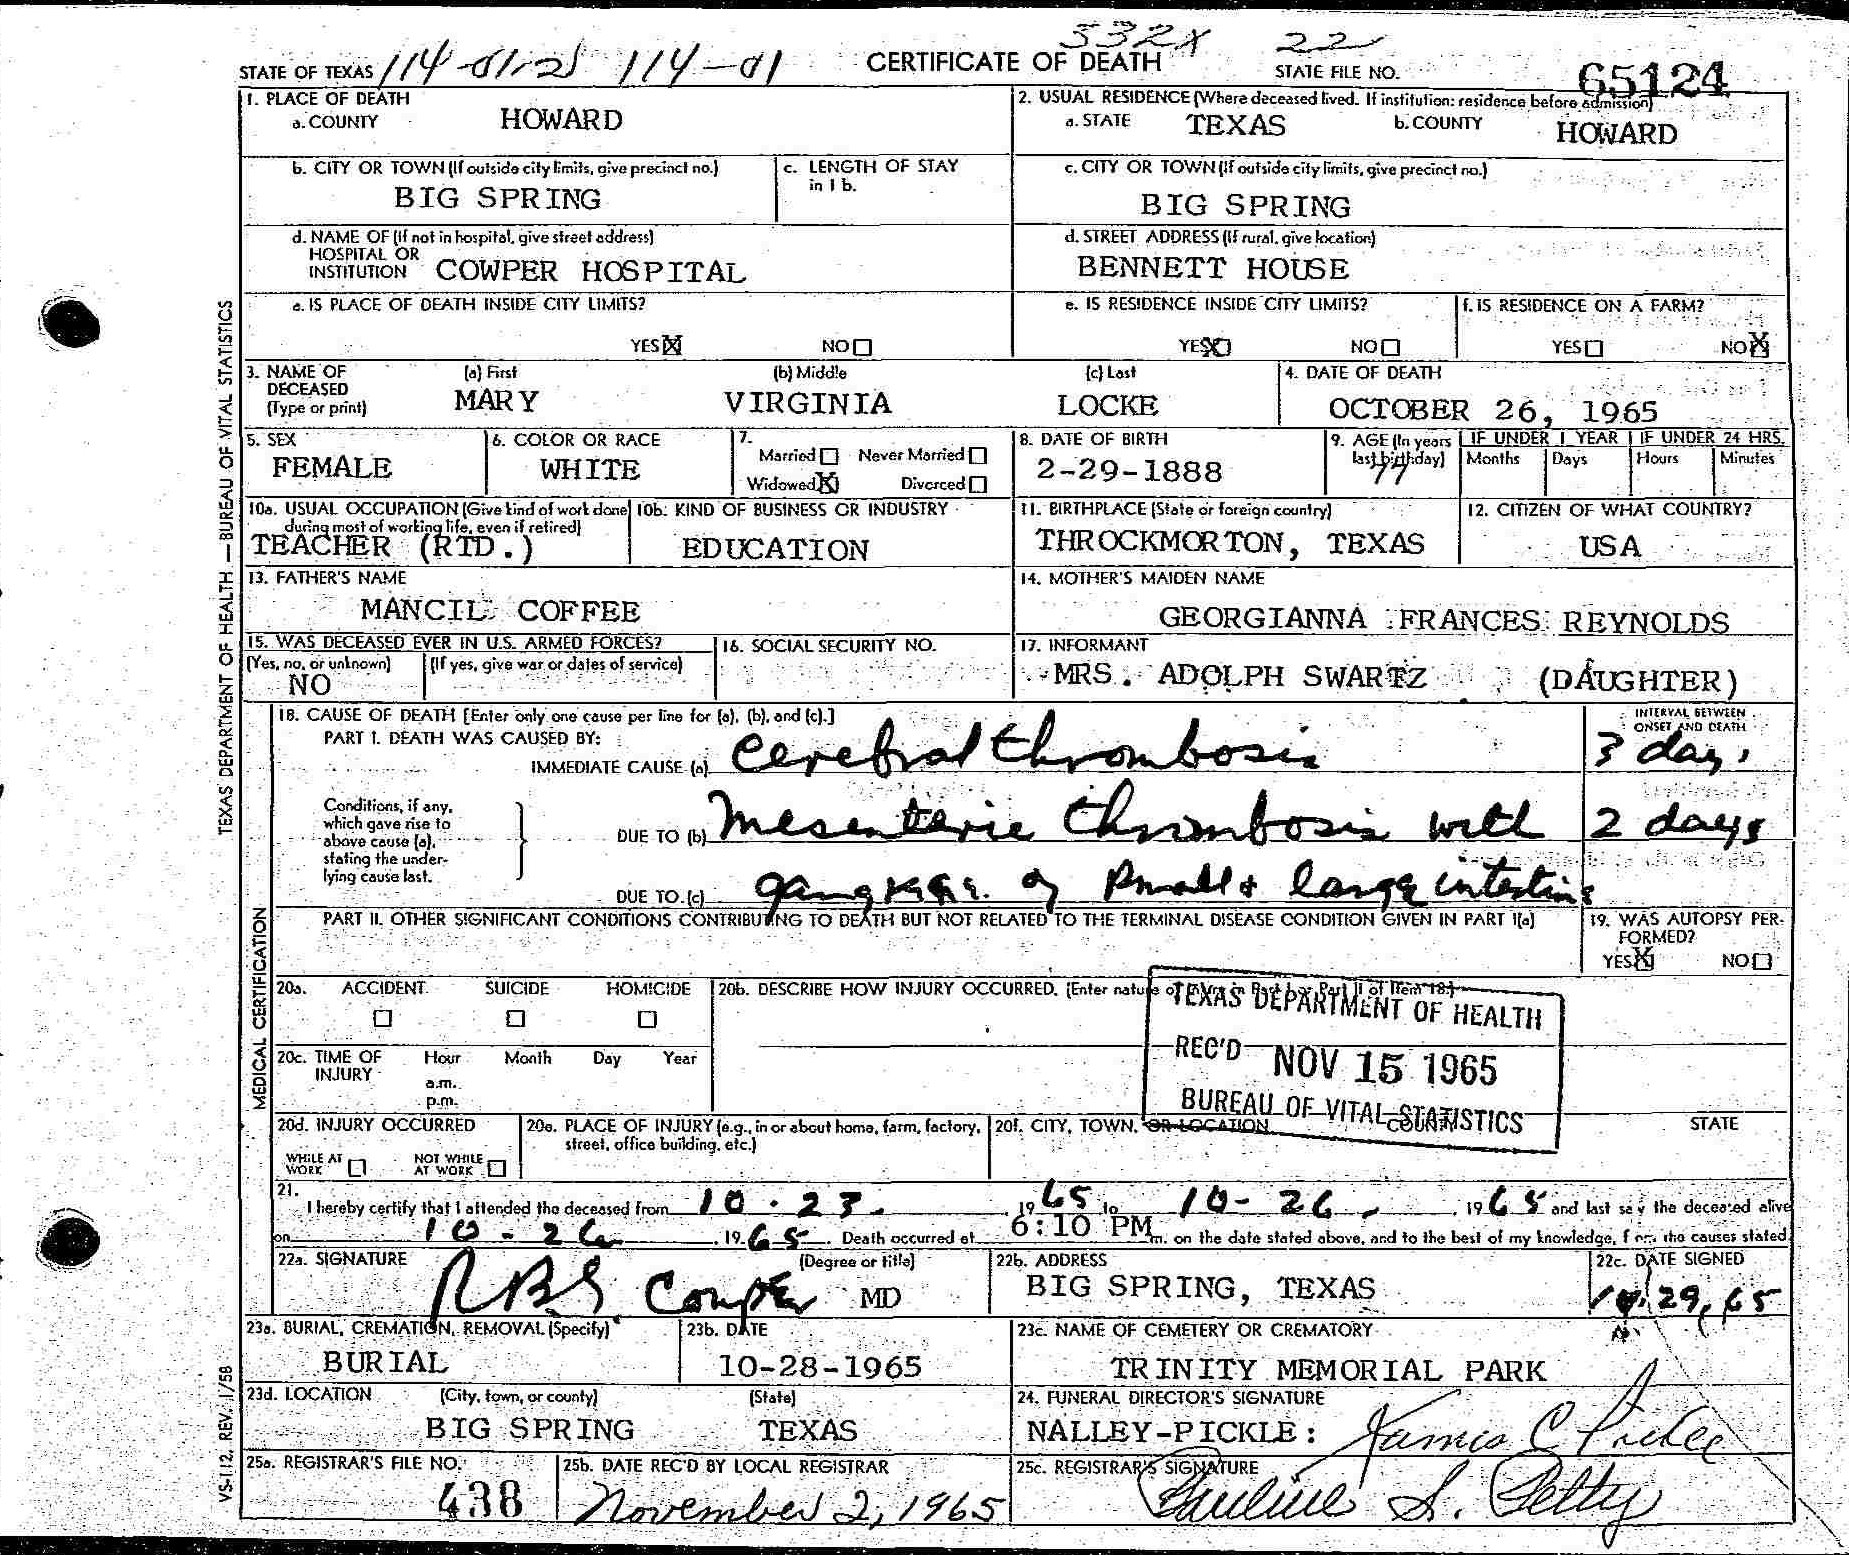 332X 22
STATE OF TEXAS 114-01-21 114-01 CERTIFICATE OF DEATH STATE FILE NO. 65124
1. PLACE OF DEATH
a. COUNTY HOWARD
2. USUAL RESIDENCE (Where deceased lived. If institution: residence before admission)
a. STATE TEXAS b. COUNTY HOWARD
b. CITY OR TOWN (If outside city limits, give precinct no.)
BIG SPRING
c. LENGTH OF STAY
in 1 b.
c. CITY OR TOWN (If outside city limits, give precinct no.)
BIG SPRING
d. NAME OF (If not in hospital, give street address)
HOSPITAL OR
INSTITUTION COWPER HOSPITAL
d. STREET ADDRESS (If rural, give location)
BENNETT HOUSE
e. IS PLACE OF DEATH INSIDE CITY LIMITS?
YES X NO
e. IS RESIDENCE INSIDE CITY LIMITS?
YES X NO
f. IS RESIDENCE ON A FARM?
YES NO X
3. NAME OF
DECEASED
(Type or print)
(a) First (b) Middle (c) Last
MARY VIRGINIA LOCKE
4. DATE OF DEATH
OCTOBER 26, 1965
5. SEX
FEMALE
6. COLOR OR RACE
WHITE
7.
Married Never Married
Widowed X Divorced
8. DATE OF BIRTH
2-29-1888
9. AGE (In years
last birthday)
77
IF UNDER 1 YEAR IF UNDER 24 HRS.
Months Days Hours Minutes
10a. USUAL OCCUPATION (Give kind of work done
during most of working life, even if retired)
TEACHER (RTD.)
10b. KIND OF BUSINESS OR INDUSTRY
EDUCATION
11. BIRTHPLACE (State or foreign country)
THROCKMORTON, TEXAS
12. CITIZEN OF WHAT COUNTRY?
USA
13. FATHER'S NAME
MANCIL COFFEE
14. MOTHER'S MAIDEN NAME
GEORGIANNA FRANCES REYNOLDS
15. WAS DECEASED EVER IN U.S. ARMED FORCES?
(Yes, no, or unknown) (If yes, give war or dates of service)
NO
16. SOCIAL SECURITY NO.
17. INFORMANT
MRS. ADOLPH SWARTZ (DAUGHTER)
18. CAUSE OF DEATH [Enter only one cause per line for (a), (b), and (c).]
PART I. DEATH WAS CAUSED BY:
IMMEDIATE CAUSE (a) Cerebral thrombosis
INTERVAL BETWEEN
ONSET AND DEATH
3 days
Conditions, if any,
which gave rise to
above cause (a),
stating the under-
lying cause last.
DUE TO (b) Mesenteric thrombosis with 2 days
DUE TO (c) gangrene of small & large intestine
PART II. OTHER SIGNIFICANT CONDITIONS CONTRIBUTING TO DEATH BUT NOT RELATED TO THE TERMINAL DISEASE CONDITION GIVEN IN PART I(a)
19. WAS AUTOPSY PER-
FORMED?
YES X NO
20a. ACCIDENT SUICIDE HOMICIDE
20b. DESCRIBE HOW INJURY OCCURRED. (Enter nature of injury in Part I or Part II of Item 18.)
TEXAS DEPARTMENT OF HEALTH
REC'D NOV 15 1965
BUREAU OF VITAL STATISTICS
20c. TIME OF
INJURY
Hour Month Day Year
a.m.
p.m.
20d. INJURY OCCURRED
WHILE AT
WORK
NOT WHILE
AT WORK
20e. PLACE OF INJURY (e.g., in or about home, farm, factory,
street, office building, etc.)
20f. CITY, TOWN, OR LOCATION COUNTY STATE
21.
I hereby certify that I attended the deceased from 10-23- 1965 to 10-26-, 1965 and last saw the deceased alive
on 10-26, 1965. Death occurred at 6:10 PM m. on the date stated above, and to the best of my knowledge, from the causes stated.
22a. SIGNATURE (Degree or title)
RBG Cowper MD
22b. ADDRESS
BIG SPRING, TEXAS
22c. DATE SIGNED
10/29/65
23a. BURIAL, CREMATION, REMOVAL (Specify)
BURIAL
23b. DATE
10-28-1965
23c. NAME OF CEMETERY OR CREMATORY
TRINITY MEMORIAL PARK
23d. LOCATION (City, town, or county) (State)
BIG SPRING TEXAS
24. FUNERAL DIRECTOR'S SIGNATURE
NALLEY-PICKLE: James C Pickle
25a. REGISTRAR'S FILE NO.
438
25b. DATE REC'D BY LOCAL REGISTRAR
November 2, 1965
25c. REGISTRAR'S SIGNATURE
Pauline S. Petty
TEXAS DEPARTMENT OF HEALTH — BUREAU OF VITAL STATISTICS
MEDICAL CERTIFICATION
VS-112, REV. 1/58